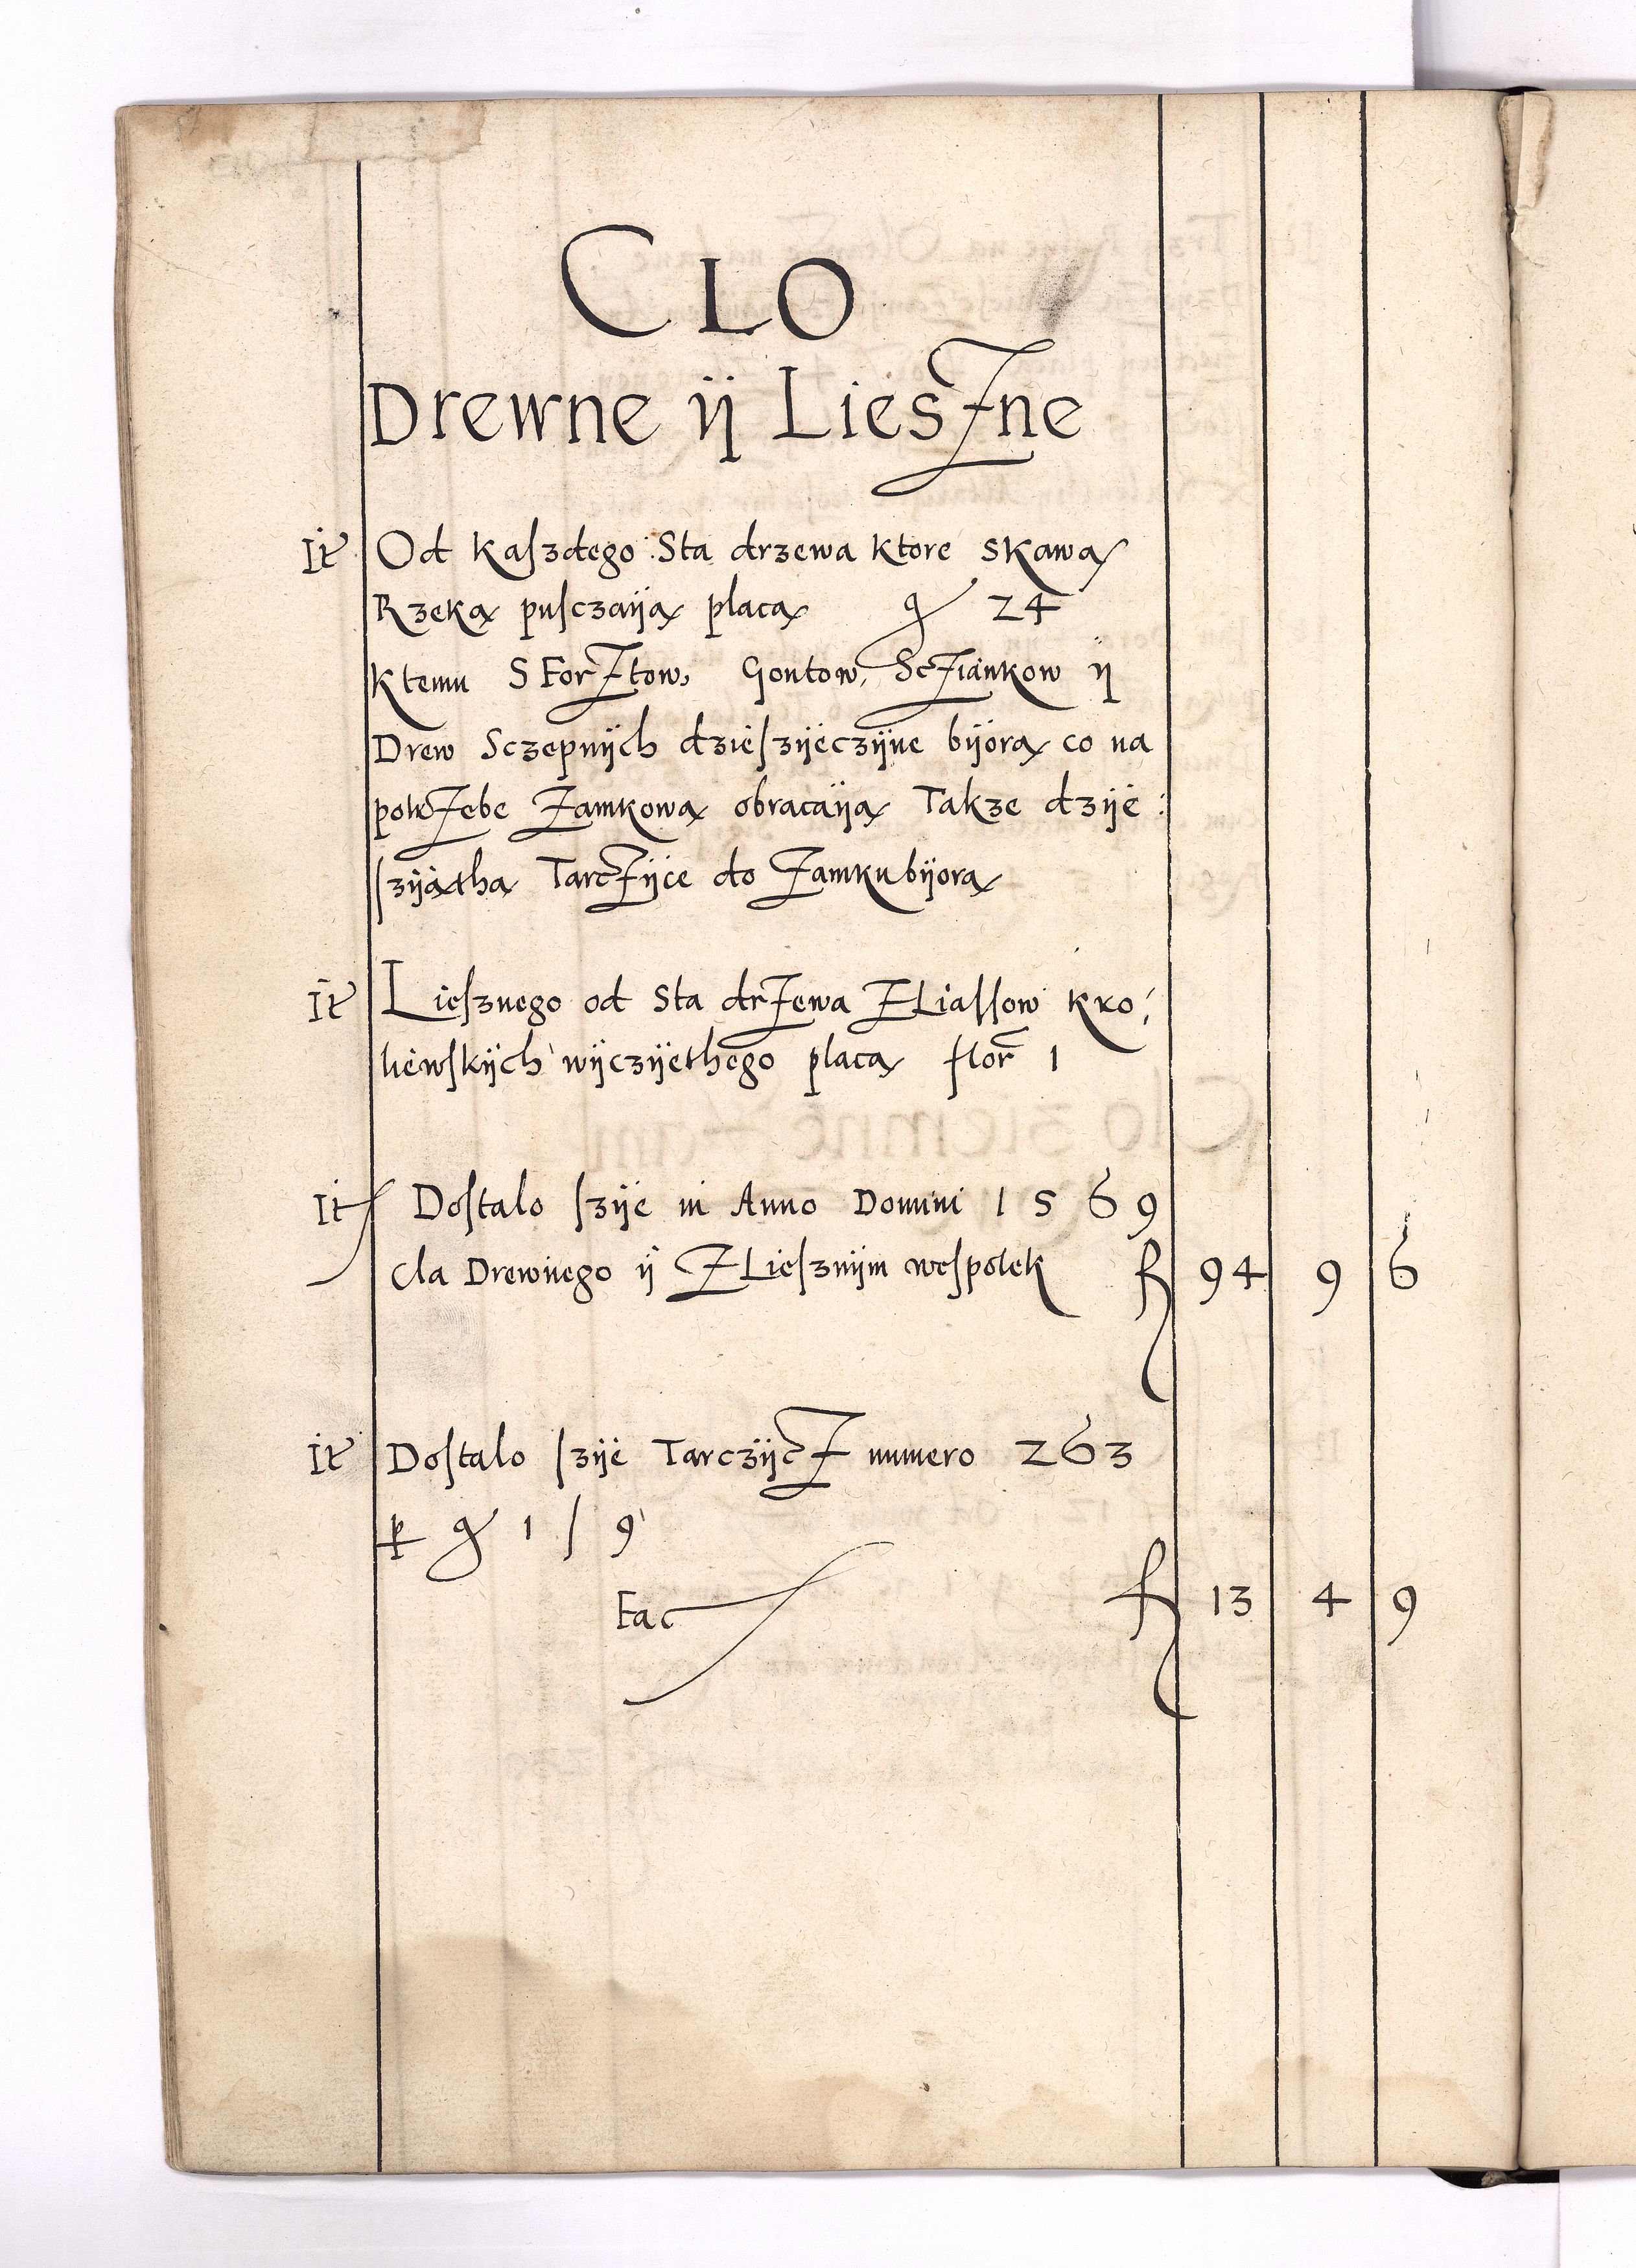 CLO
Drewne ij LiesZne
It Od kaszdego Sta drzewa ktore Skawą
Rzeką pusczaiją placą g 24
ktemu S ForZtow, Gontow, ScZiankow ij
Drew Sczepnijch dzieszijeczijne bijorą co na
potrZebe Zamkową obracaiją Takze dzije:
szijątha TarcZijce do Zamku bijorą
It Liesznego od Sta drZewa Z Liassow kro:
liewskijch wijczijethego placą flor 1
It Dostalo szije in Anno Domini 1569
Cla Drewnego ij Z Liesznijm wespolek f 94 9 6
It Dostalo szije TarczijcZ numero 263
p g 1 / 9
Fac f 13 4 9